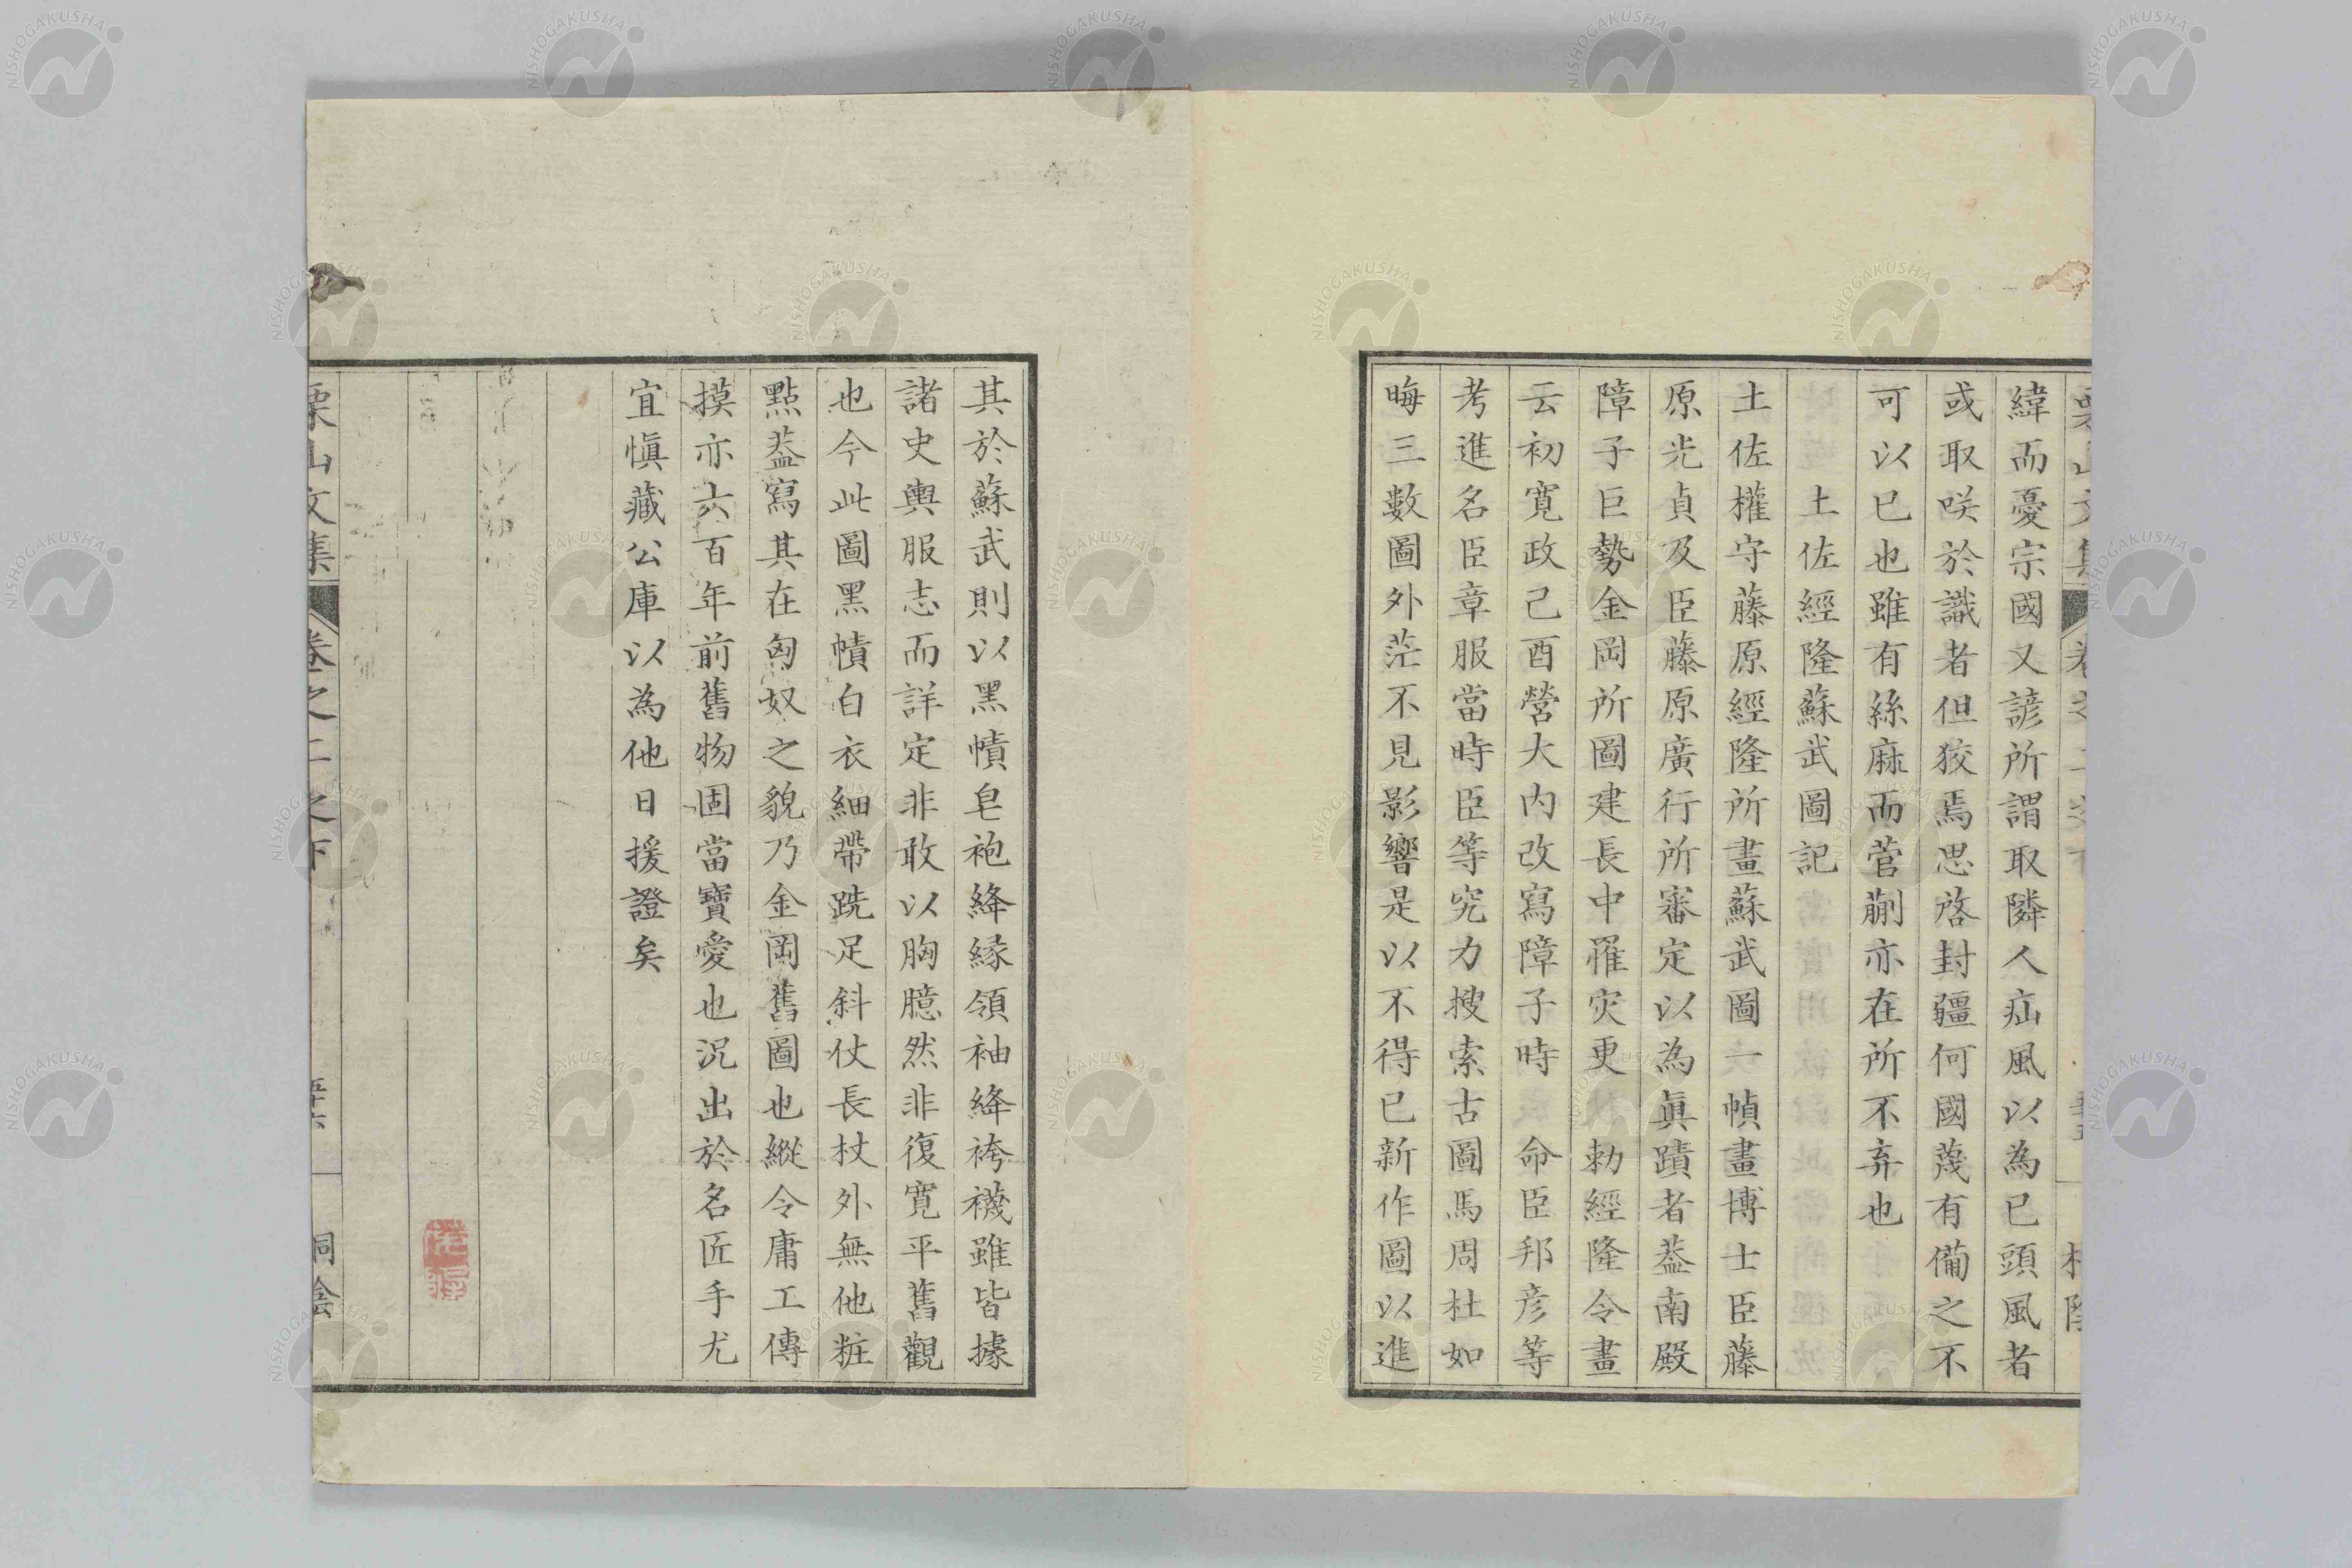 緯而憂宗國又諺所謂取隣人疝風以為已頭風者
或取咲於識者但狡焉思啓封疆何國蔑有備之不
可以已也雖有絲麻而菅蒯亦在所不弃也
土佐經隆蘇武圖記
土佐權守藤原經隆所畫蘇武圖一幀畫博士臣藤
原光貞及臣藤原廣行所審定以為眞蹟者葢南殿
障子巨勢金岡所圖建長中罹灾更 勅經隆令畫
云初寛政己酉營大內改寫障子時 命臣邦彦等
考進名臣章服當時臣等究力搜索古圖馬周杜如
晦三數圖外茫不見影響是以不得已新作圖以進
其於蘇武則以黑幘皂袍絳縁領袖絳袴襪雖皆據
諸史輿服志而詳定非敢以胸臆然非復寛平舊觀
也今此圖黑幘白衣細帶跣足斜仗長杖外無他粧
點葢寫其在匈奴之貌乃金岡舊圖也縱令庸工傳
摸亦六百年前舊物固當寶愛也況出於名匠手尤
宜愼藏公庫以為他日援證矣
栗山文集 卷之二之下
NISHOGAKUSHA